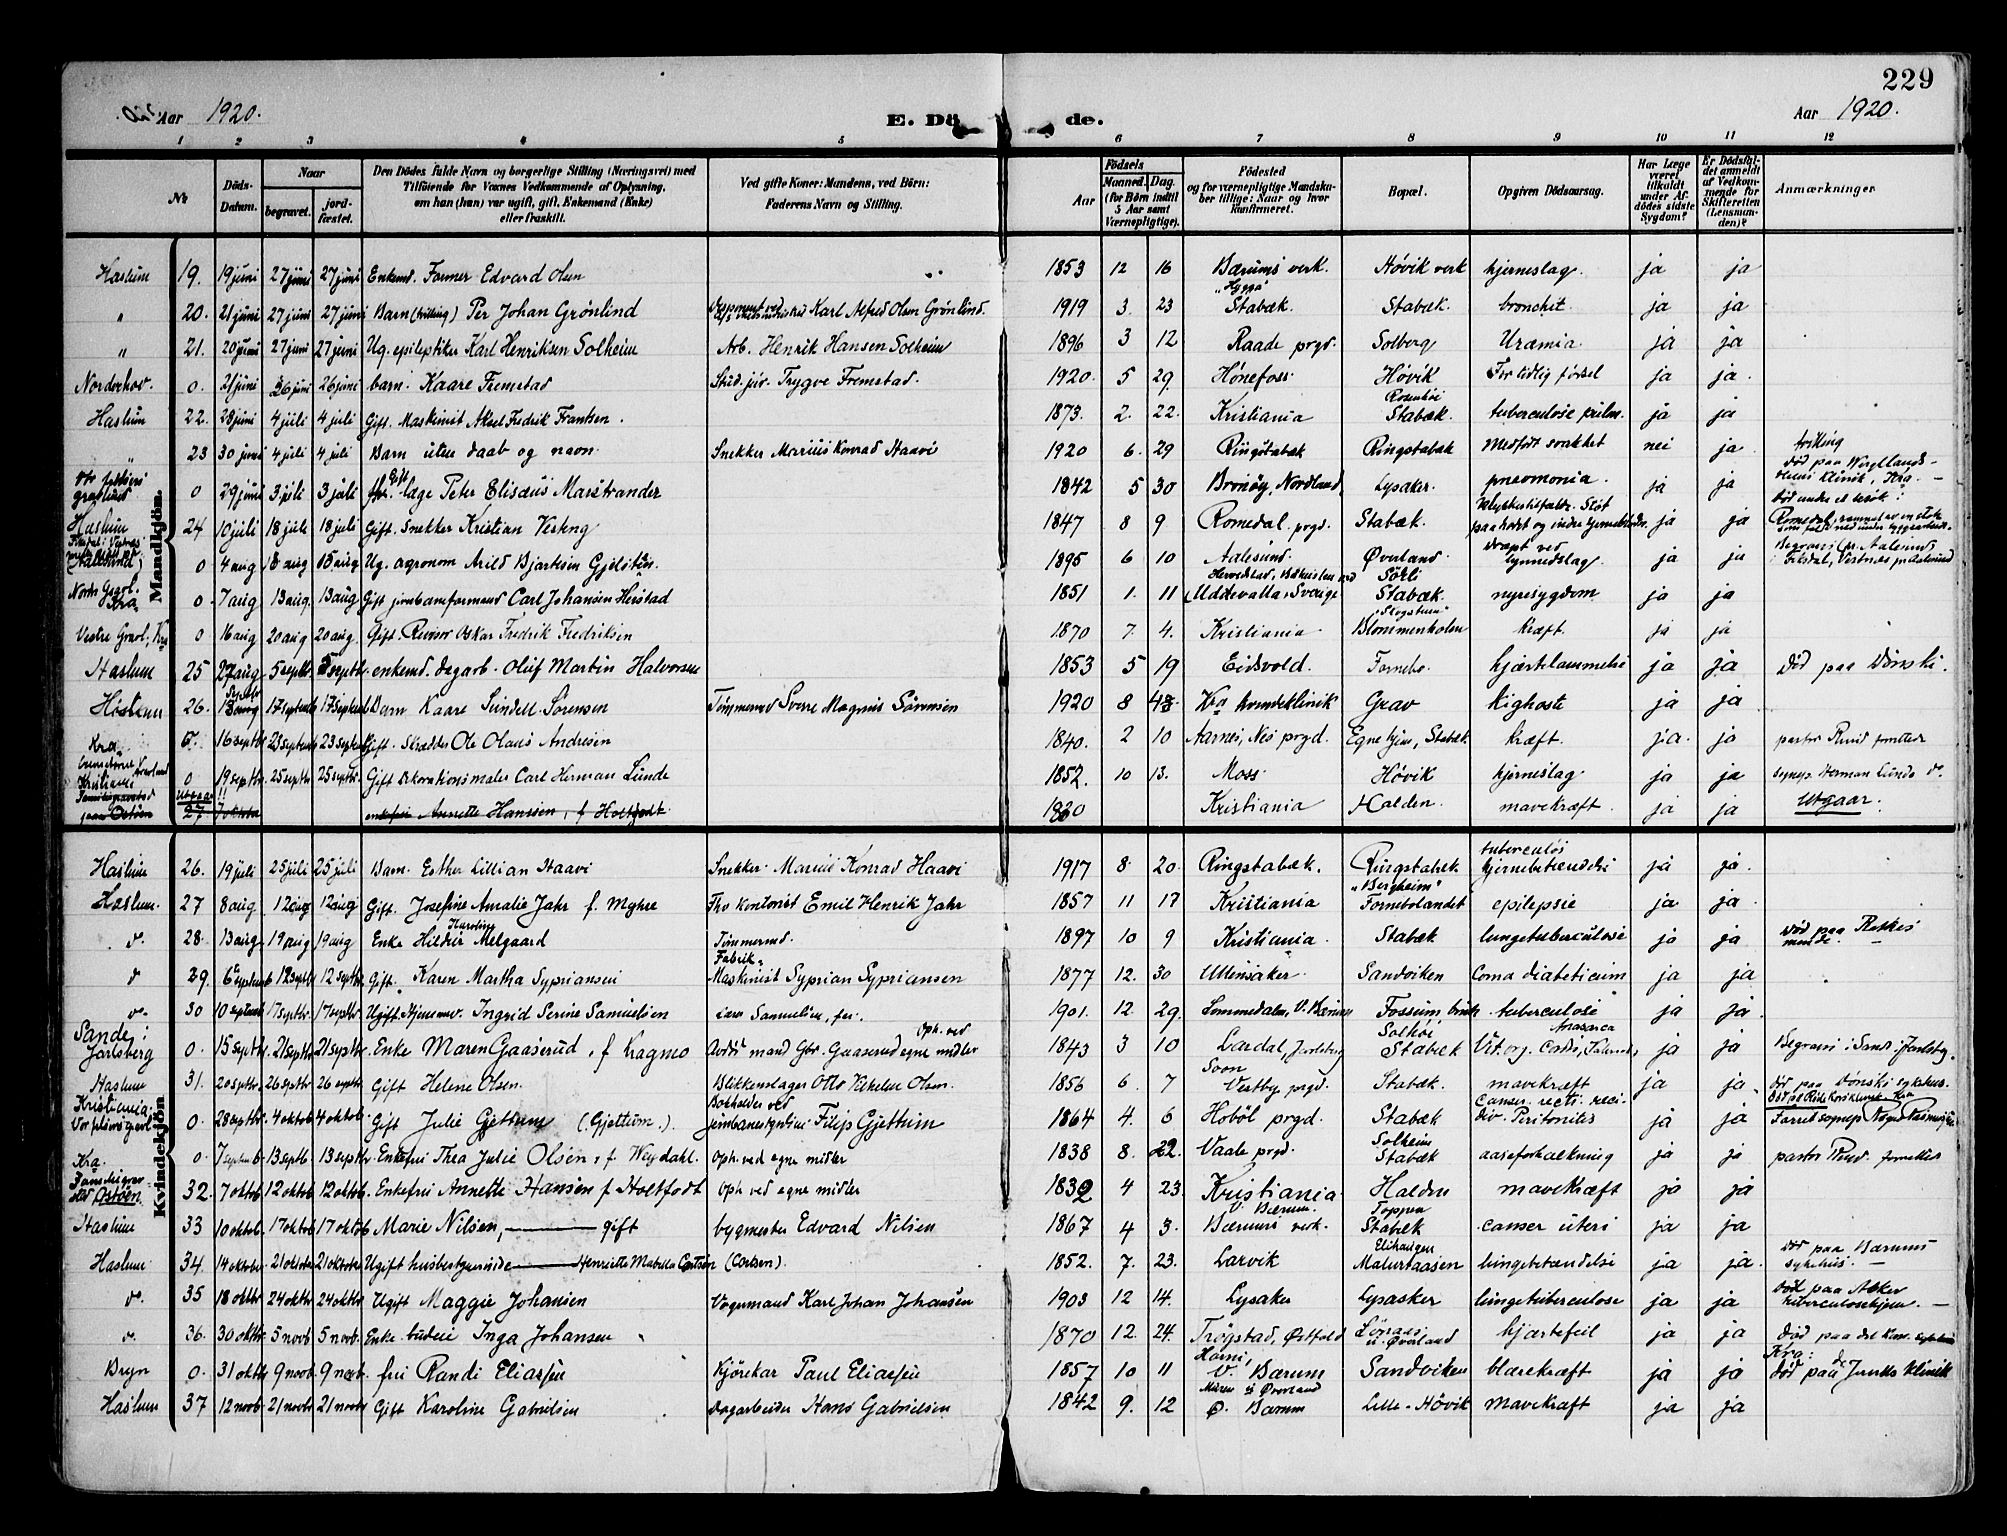 229
Aar 1920.
E. Döde.
Aar 1920.
1 2 3 4 5 6 7 8 9 10 11 12
No
Döds-Datum.
Naar
begravet.
jordfæstet.
Den Dödes fulde Navn og borgerlige Stilling (Næringsvei) med
Tilföiende for Voxnes Vedkommende af Oplysning,
om han (hun) var ugift, gift, Enkemand (Enke)
eller fraskilt.
Ved gifte Koner: Mandens, ved Börn:
Faderens Navn og Stilling.
Födsels
Aar
Maaned. Dag.
(for Börn indtil 5 Aar samt Værnepligtige).
Födested
og for værnepligtige Mandskaber tillige: Naar og hvor konfirmeret.
Bopæl.
Opgiven Dödsaarsag.
Har Læge været tilkaldt under Afdödes sidste Sygdom?
Er Dödsfaldet anmeldt af Vedkommende for Skifteretten (Lensmanden)?
Anmærkninger
Mandkjön.
Haslum 19. 19 juni 27 juni 27 juni Enkemd. Former Edvard Olsen 1853 12 16 Bærums verk. Hövik verk hjerneslag. ja ja
" 20. 21 juni 27 juni 27 juni Barn (tvilling) Per Johan Grönlind Karl Alfred Olsen Grönlind. 1919 3. 23 "Hygga" Stabæk. Stabæk. bronchit. ja ja
" 21. 20 juni 27 juni 27 juni Ug. epileptiker Karl Henriksen Solheim Arb. Henrik Hansen Solheim 1896 3 12 Raade prgd. Solberg Uræmia. ja ja
Norderhov. 0. 21 juni 26 juni 26 juni barn. Kaare Fremstad Stud. jur. Trygve Fremstad. 1920. 5 29 Hönefoss. Hövik For tidlig försel ja ja.
Haslum 22. 28 juni 4 juli 4 juli Gift. Maskinist Aksel Fredrik Frantsen. 1873. 2. 22. Kristiania Stabæk. tuberculose pulm. ja ja
" 23 30 juni 4 juli 4 juli Barn uten daab og navn. Snekker Marius Konrad Haavi 1920 6. 29 Ringstabæk Ringstabæk Medfödt svakhet nei ja. tvilling
Vor frelsers gravlund 0 29 juni 3 juli 3 juli Gift læge Peter Elisæus Marstrander 1842 5 30 Brönöy, Nordland, Lysaker. pneomonia. ja ja död paa klinik, Kra.
Haslum 24 10 juli 18 juli 18 juli Gift. Snekker Kristian Vesteng 1847 8 9 Romedal prgd. Stabæk. ja ja
0 4 aug 8 aug Ug. agronom Arild Bjartesen Gjelsten. 1895 6 10 Aalesund. Överland. dræpt ved lynnedslag. ja ja
Kra 0. 7 aug 13 aug. 13 aug Gift jernbaneformand Carl Johansen Herstad 1851 1. 11 Uddevalla, Sverige Stabæk. nyresygdom ja ja
Vestre Gravl. Kra 0 16 aug 20 aug 20 aug. Gift. Revisor Oskar Fredrik Fredriksen 1870 7. 4. Kristiania Blommenholm kræft. ja ja
Haslum 25 27 aug 5 septbr. 5 septbr. enkemd. dagarb. Oluf Martin Halvorsen 1853 5 19 Eidsvold. Fornebo. hjærtelammelse ja ja Död paa Dönski.
Haslum 26. 17 septemb 17 septemb Barn Kaare Sundell Sörensen Tömmermd Sverre Magnus Sörensen 1920 8 Kra kvindeklinik Grav kighoste ja ja
Kra 0. 16 septb 23 septemb 23 septemb Gift. Skrædder Ole Olaus Andresen 1840. 2 10 Aarnes, Nes prgd. Egne hjem, Stabæk. kræft. ja. ja pastor Ruud forrettet
Kristiania 0 19 septbr. 25 septbr 25 septbr. Gift Dekorationsmaler Carl Herman Lunde 1852. 10 13. Moss. Hövik hjerneslag ja ja sogneprest Herman Lunde
Utgaar!! 27 7 oktober enkefru Annette Hanssen, f. Holtfodt Kristiania Halden. mavekræft. ja ja Utgaar.
Kvindekjön
Haslum 26. 19 juli 25 juli 25 juli Barn. Esther Lillian Haavi Snekker Marius Konrad Haavi 1917 8. 20. Ringstabæk. Ringstabæk tuberculös hjernebetændelse ja ja.
Haslum. 27 8 aug 12 aug 12 aug Gift. Josefine Amalie Jahr f. Myhre Fhv kontorist Emil Henrik Jahr 1857 11 17 Kristiania "Bergheim" Fornebolandet epilepsie ja ja
do. 28. 13 aug 19 aug 19 aug Enke Hildur Karoline Melgaard Tömmermd. 1897 10 9 Kristiania. Stabæk lungetuberculose ja ja död paa
do 29. 12 septb 12 septbr Gift. Karen Martha Syprianseu Fabrik- Maskinist Syprian Sypriansen 1877 12. 30 Ullensaker Sandviken Coma diabeticum ja ja
do. 30 10 septemb 17 septbr. 17 septbr. Ugift. Ingrid Serine Samuelsen 1901. 12. 29. Lommedalen, V. Bærum Fossum bruk tuberculose ja ja
Sande i Jarlsberg 0. 15 septbr. 21 septbr 21 septbr. Enke Maren Gaaserud, f. Kragmo Oph. ved egne midler 1843 3 10 Lardal, Jarlsberg Solhöi Stabæk Vit. org. cordis, Anasarca ja ja Begraves i Sande, Jarlsbg.
Haslum 31. 20 septbr 26 septbr 26 septbr Gift Helene Olsen. Blikkenslager Otto Vilhelm Olsen. 1856 6. 7 Soon Vestby prgd. Stabæk. mavekræft ja ja. död paa Dönski sykehus.
Kristiania, Vor frelsers gravl. 0. 28 septbr 4 oktob 4 oktob Gift Julie Gjettum (Gjettum.) Bokholder ved jernbanestyrelsen Filip Gjettum 1864 4. 6 Hoböl prgd. Stabæk Canser. recti. recidiv. Peritonites ja ja
Kra. 0. 7 septemb 13 septb 13 septbr. Enkefru Thea Julie Olsen, f. Weydahl. Oph. ved egne midler 1838 8. 22. Vaale prgd. Solheim Stabæk aareforkalkning ja ja pastor Ruud. forrettet
Ostöen 32. 7 oktob 12 oktob 12 oktob. Enkefru Annette Hansen f. Holtfodt Oph. ved egne midler 1832 4 23. Kristiania Halden mavekræft ja ja
Haslum 33 10 oktob. 17 oktob 17 oktob Marie Nilsen, gift bygmester Edvard Nilsen 1867 4 3. V. Bærum. Bærums verk. Toppen Stabæk canser uteri ja ja
Haslum 34. 14 oktobr. 21 oktobr 21 oktobr. Ugift husbestyrerinde Henriette Mathilde Cortsen (Cortsen). 1852. 7. 23. Larvik lungebetændelse ja ja. död paa Bærums sykehus.
do. 35 18 oktbr 24 oktbr 24 oktbr. Ugift Maggie Johansen Vognmand Karl Johan Johansen 1903 12 14. Lysaker Lysasker lungetuberculose ja ja död paa Aker tuberculosehjem.
do. 36. 30 oktbr. 5 novb 5 novb. Enke budeie Inga Johansen 1870 12. 24. Trögstad, Östfold Överland hjærtefeil ja ja Död paa det kom. sykehus Kra:
Bryn 0. 31 oktb 9 novb 9 novb. fru Randi Eliassen Kjörekar Paul Eliassen 1857 10 11 V. Bærum Sandviken blærekræft ja ja död paa klinik
Haslum 37 12 novb 21 novb 21 novbr Gift Karoline Gabrielsen dagarbeider Hans Gabrielsen 1842 9. 12 Ö. Bærum Lille-Hövik mavekræft ja ja